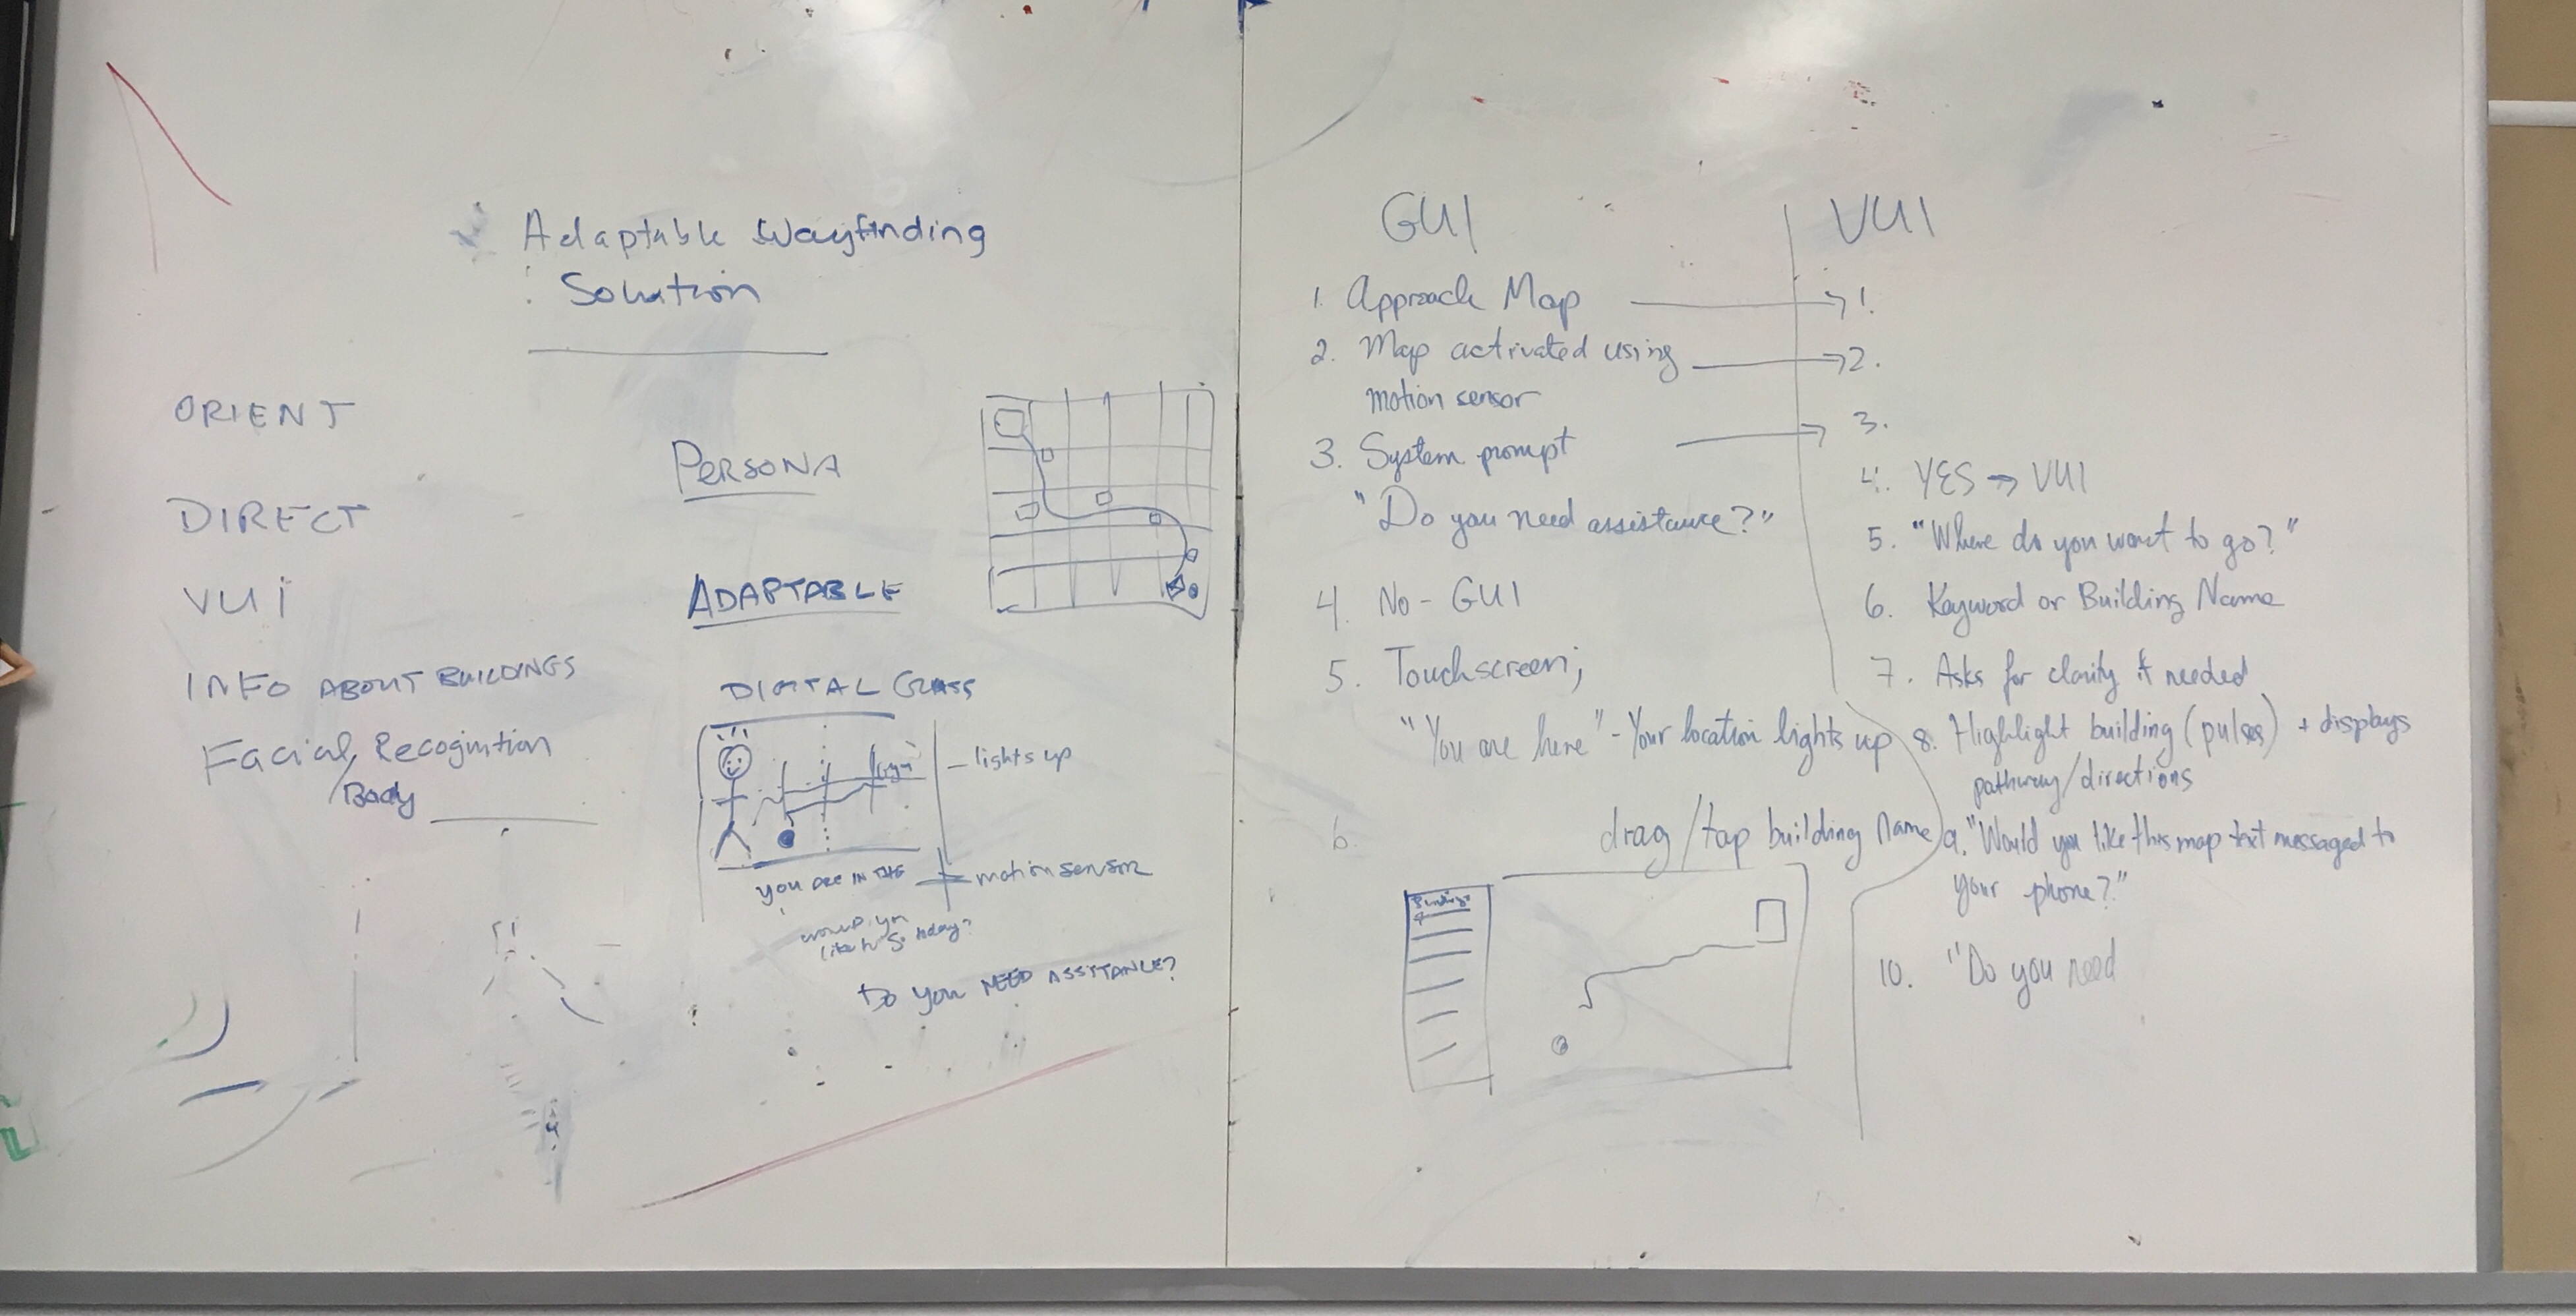 Adaptable Wayfinding
Solution
ORIENT
DIRECT
VUI
INFO ABOUT BUILDINGS
Facial Recognition
/Body
PERSONA
ADAPTABLE
DIGITAL GLASS
lights up
motion sensor
YOU ARE IN THE
would you
like to go today?
Do you NEED ASSITANCE?
GUI
1. Approach Map
2. Map activated using
motion sensor
3. System prompt
"Do you need assistance?"
4. No - GUI
5. Touchscreen;
"You are here" - Your location lights up
6.
drag/tap building name
VUI
1.
2.
3.
4. YES → VUI
5. "Where do you want to go?"
6. Keyword or Building Name
7. Asks for clarity if needed
8. Highlight building (pulses) + displays
pathway/directions
9. "Would you like this map text messaged to
your phone?"
10. "Do you need